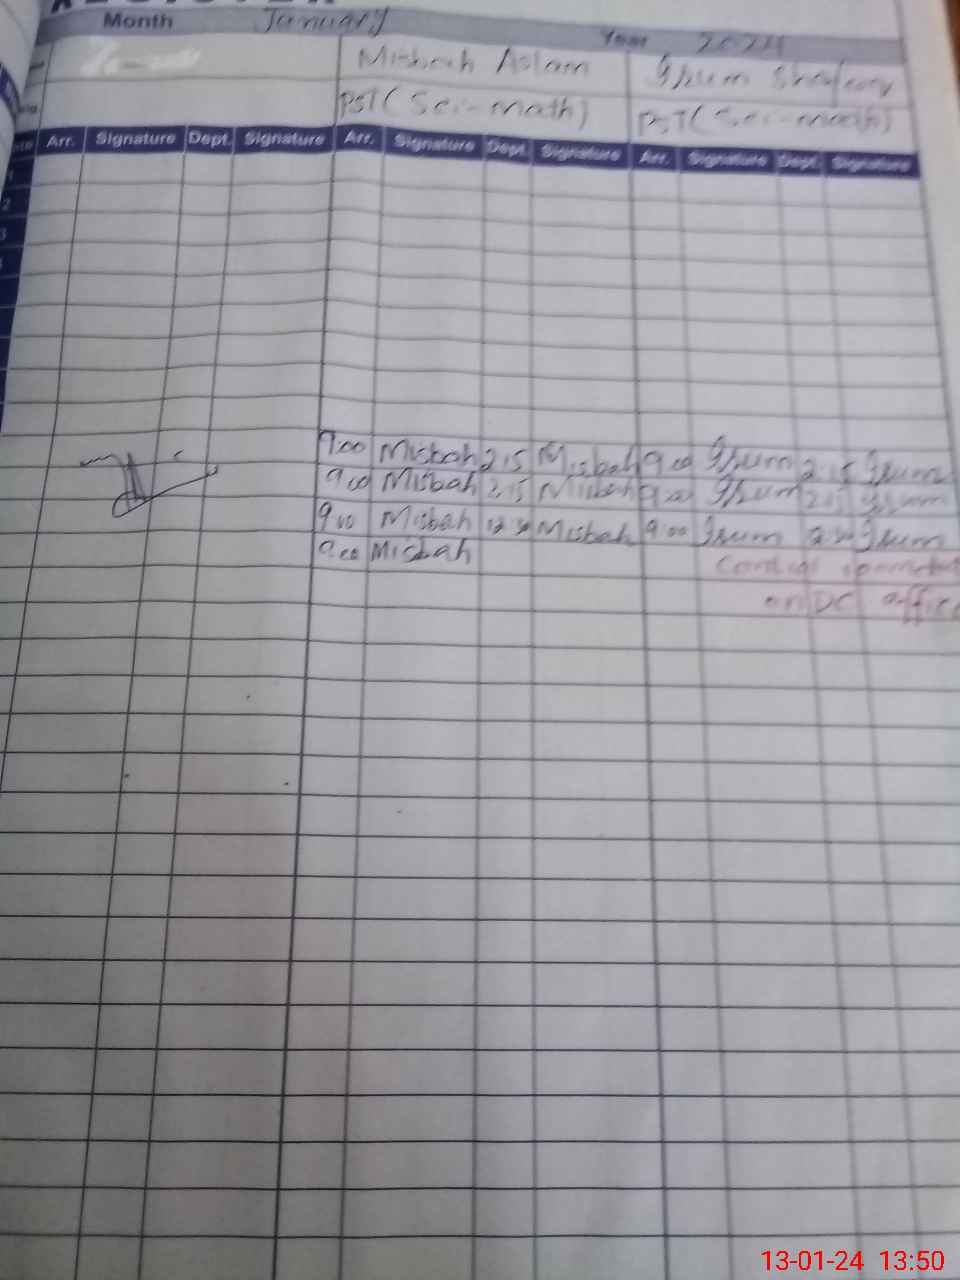 REGISTER
Month January Year 2024
Misbah Aslam
PST (Sci-math) PST (Sci-math)
Arr. Signature Dept. Signature Arr. Signature Dept. Signature Arr. Signature Dept. Signature
2
3
9:00 Misbah 2:15 Misbah 9:00 Irum 2:15 Irum
9:00 Misbah 2:15 Misbah 9:00 Irum 2:15 Irum
9:00 Misbah Misbah 9:00 Irum Irum
9:00 Misbah
on DC office
13-01-24 13:50